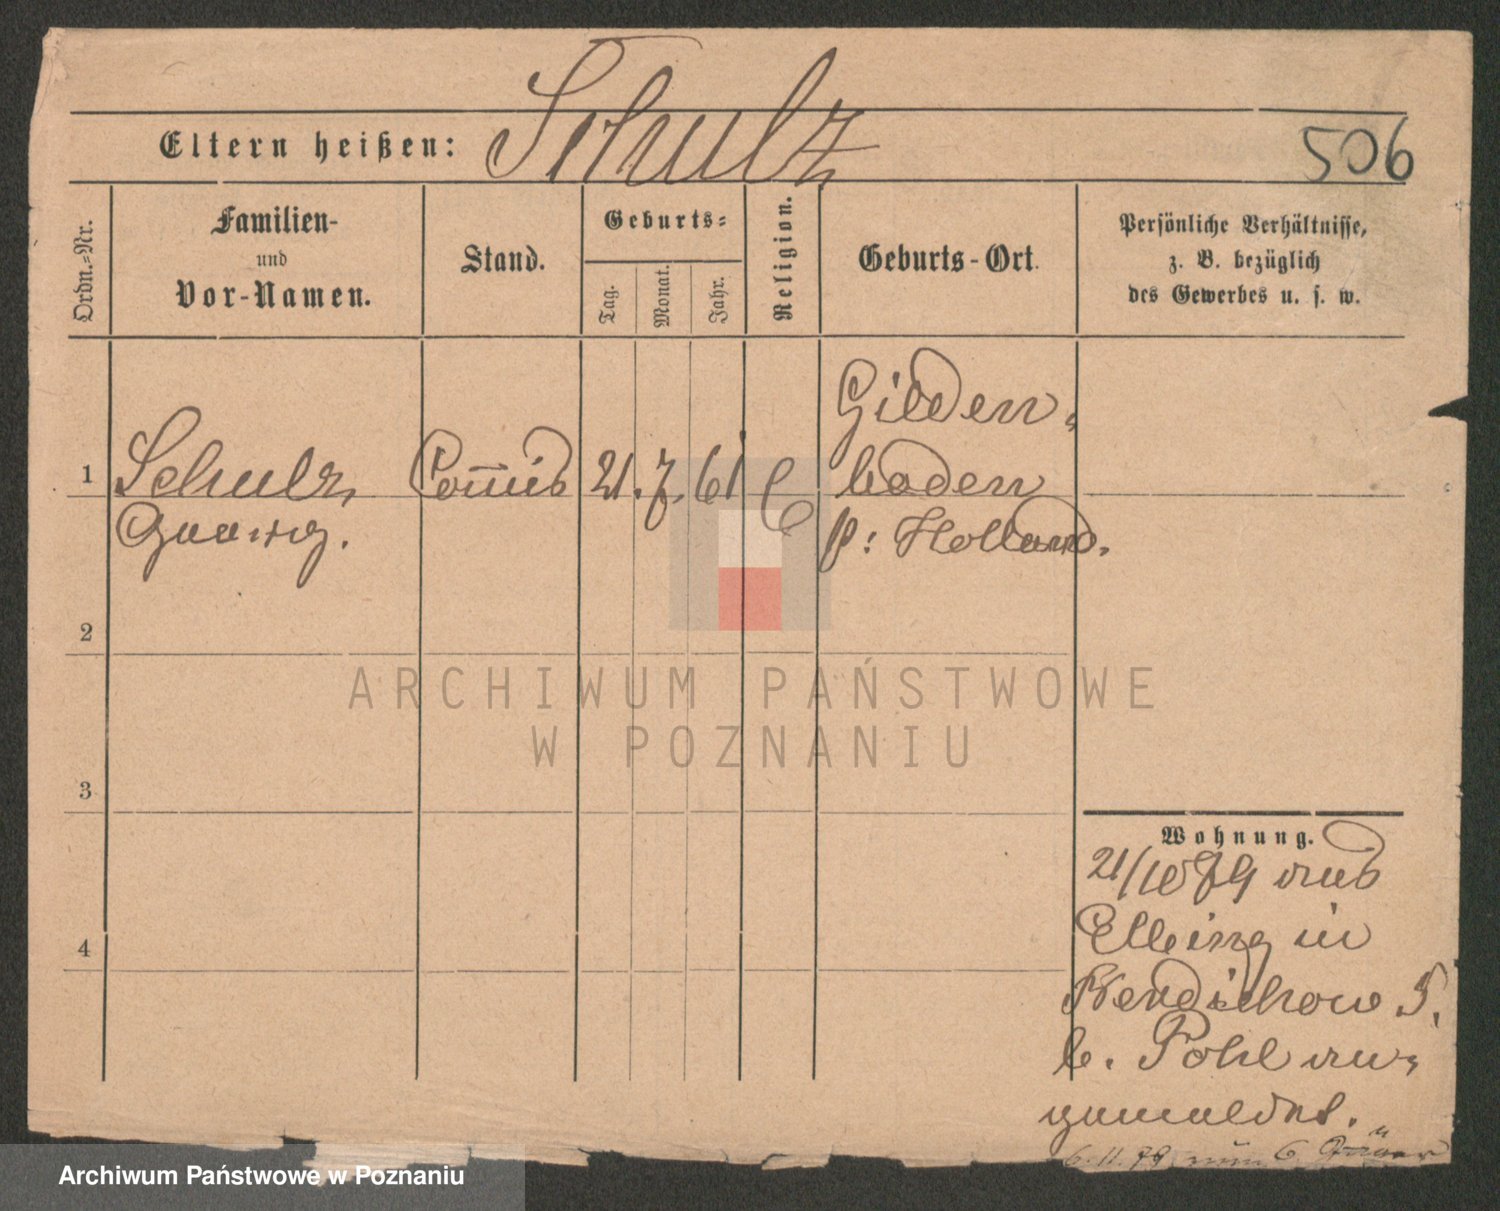 Schulz
Eltern heißen:
506
Ordn.=Nr.
Familien-
und
Vor-Namen.
Stand.
Geburts=
Tag.
Monat.
Jahr.
Religion.
Geburts-Ort.
Persönliche Verhältnisse,
z. B. bezüglich
des Gewerbes u. s. w.
1
Schulz,
Georg.
Commis
21. 7. 61
Gilden-
boden
p: Holland.
2
3
4
Wohnung.
21/10 79 aus
Elbing in
5.
b. Pohl an-
gemeldet.
6. 11. 79
6.
ARCHIWUM PAŃSTWOWE
W POZNANIU
Archiwum Państwowe w Poznaniu